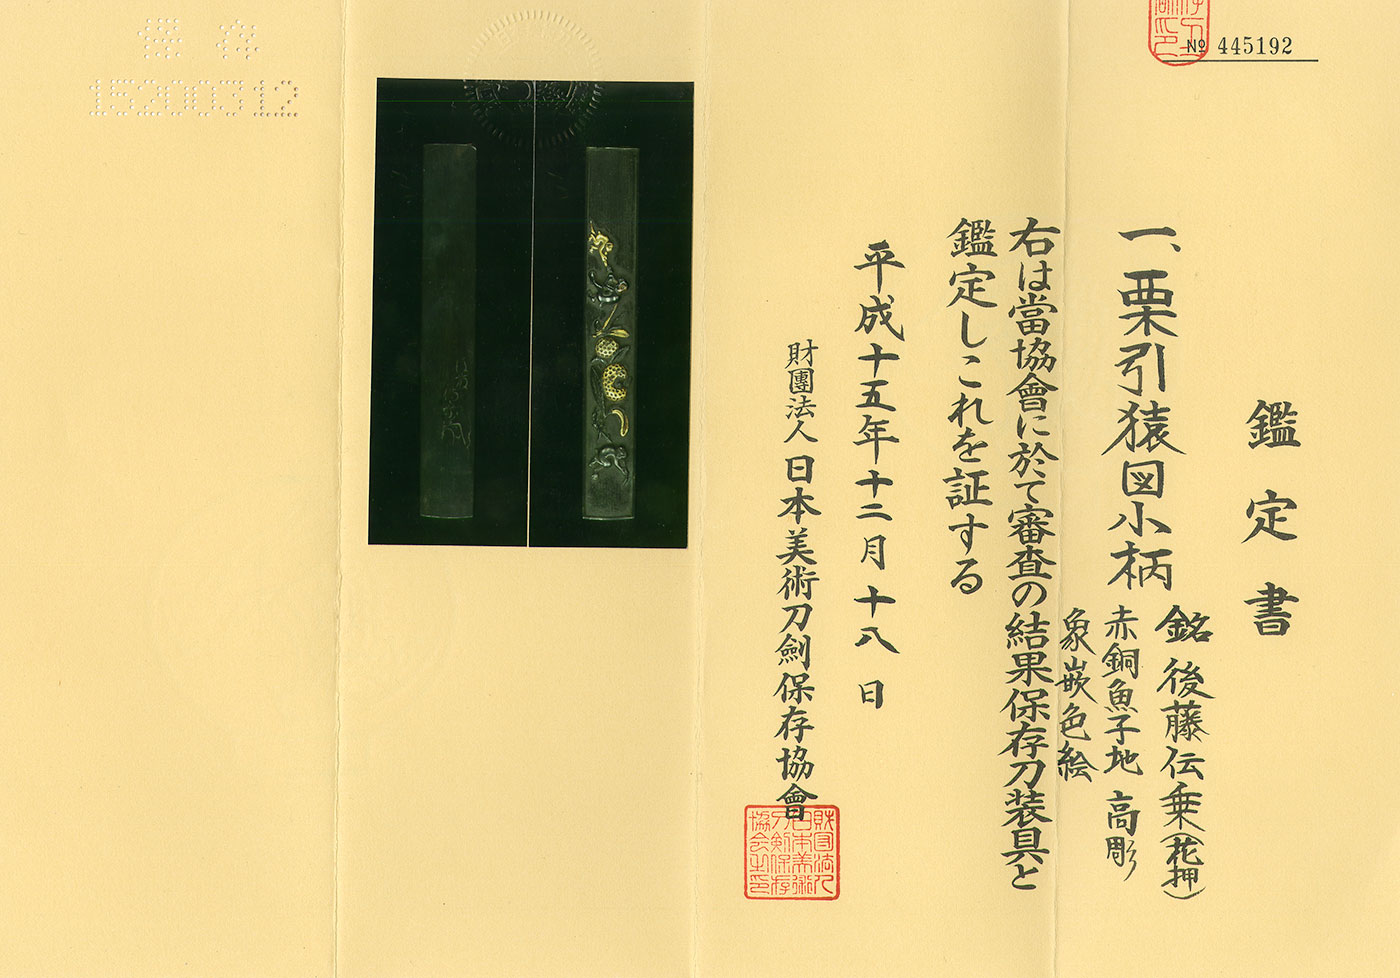 № 445192
鑑定書
一、栗引猿図小柄
銘 後藤伝乗(花押)
赤銅魚子地 高彫
象嵌色絵
右は當協會に於て審査の結果保存刀装具と
鑑定しこれを証する
平成十五年十二月十八日
財團法人日本美術刀劍保存協會
財団法人
日本美術
刀剣保存
協会之印
保存
15200312